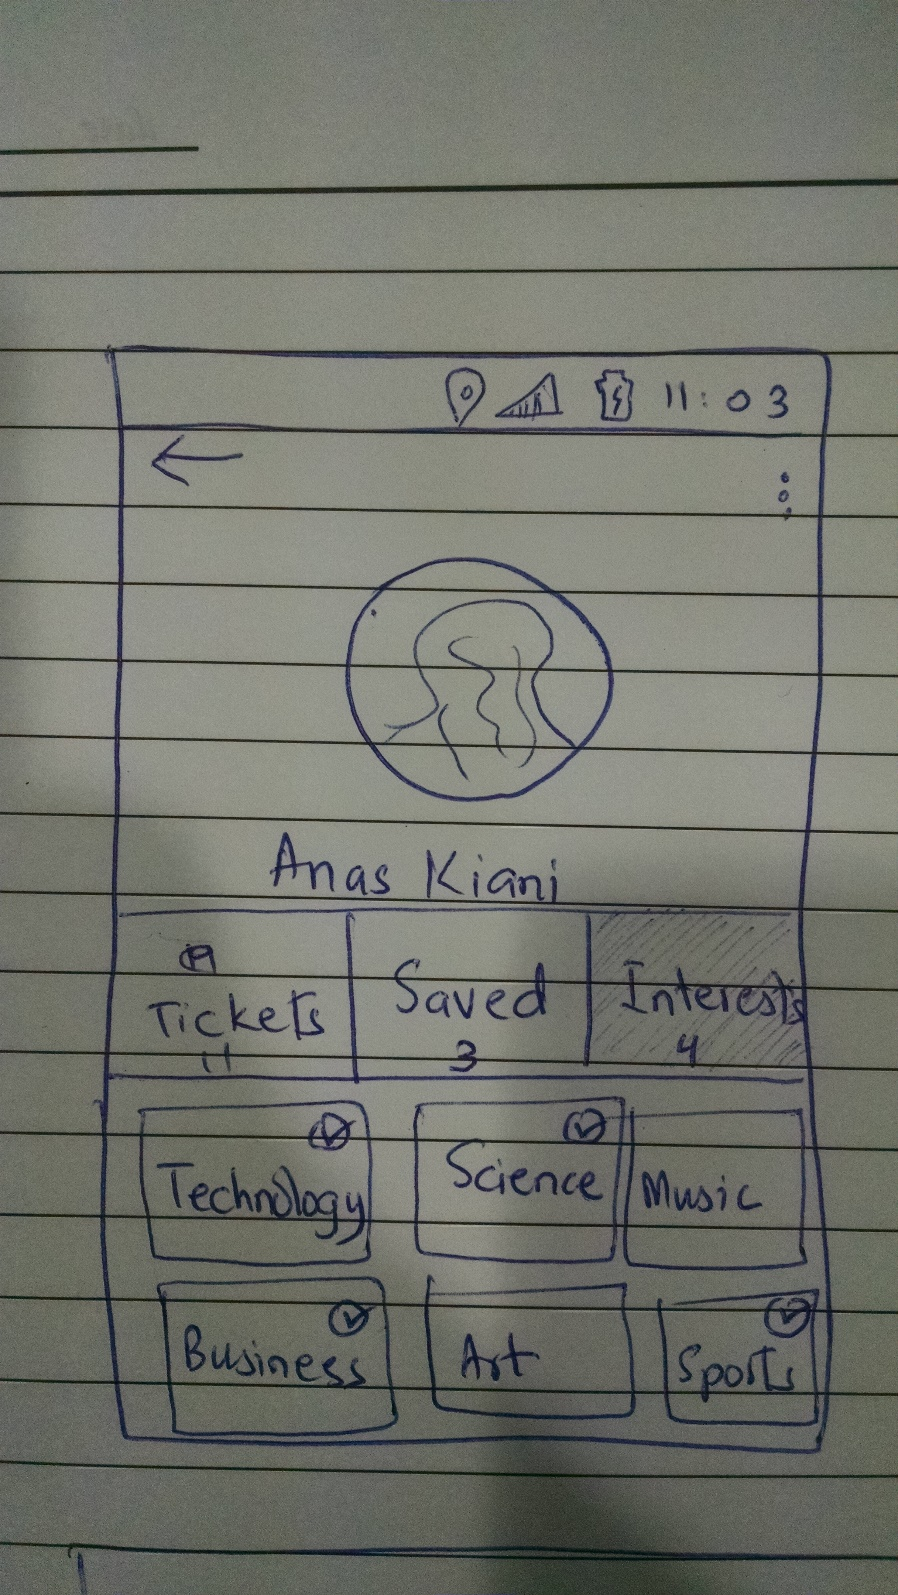 11:03
Anas Kiani
Tickets Saved Interests
11 3 4
Technology Science Music
Business Art Sports